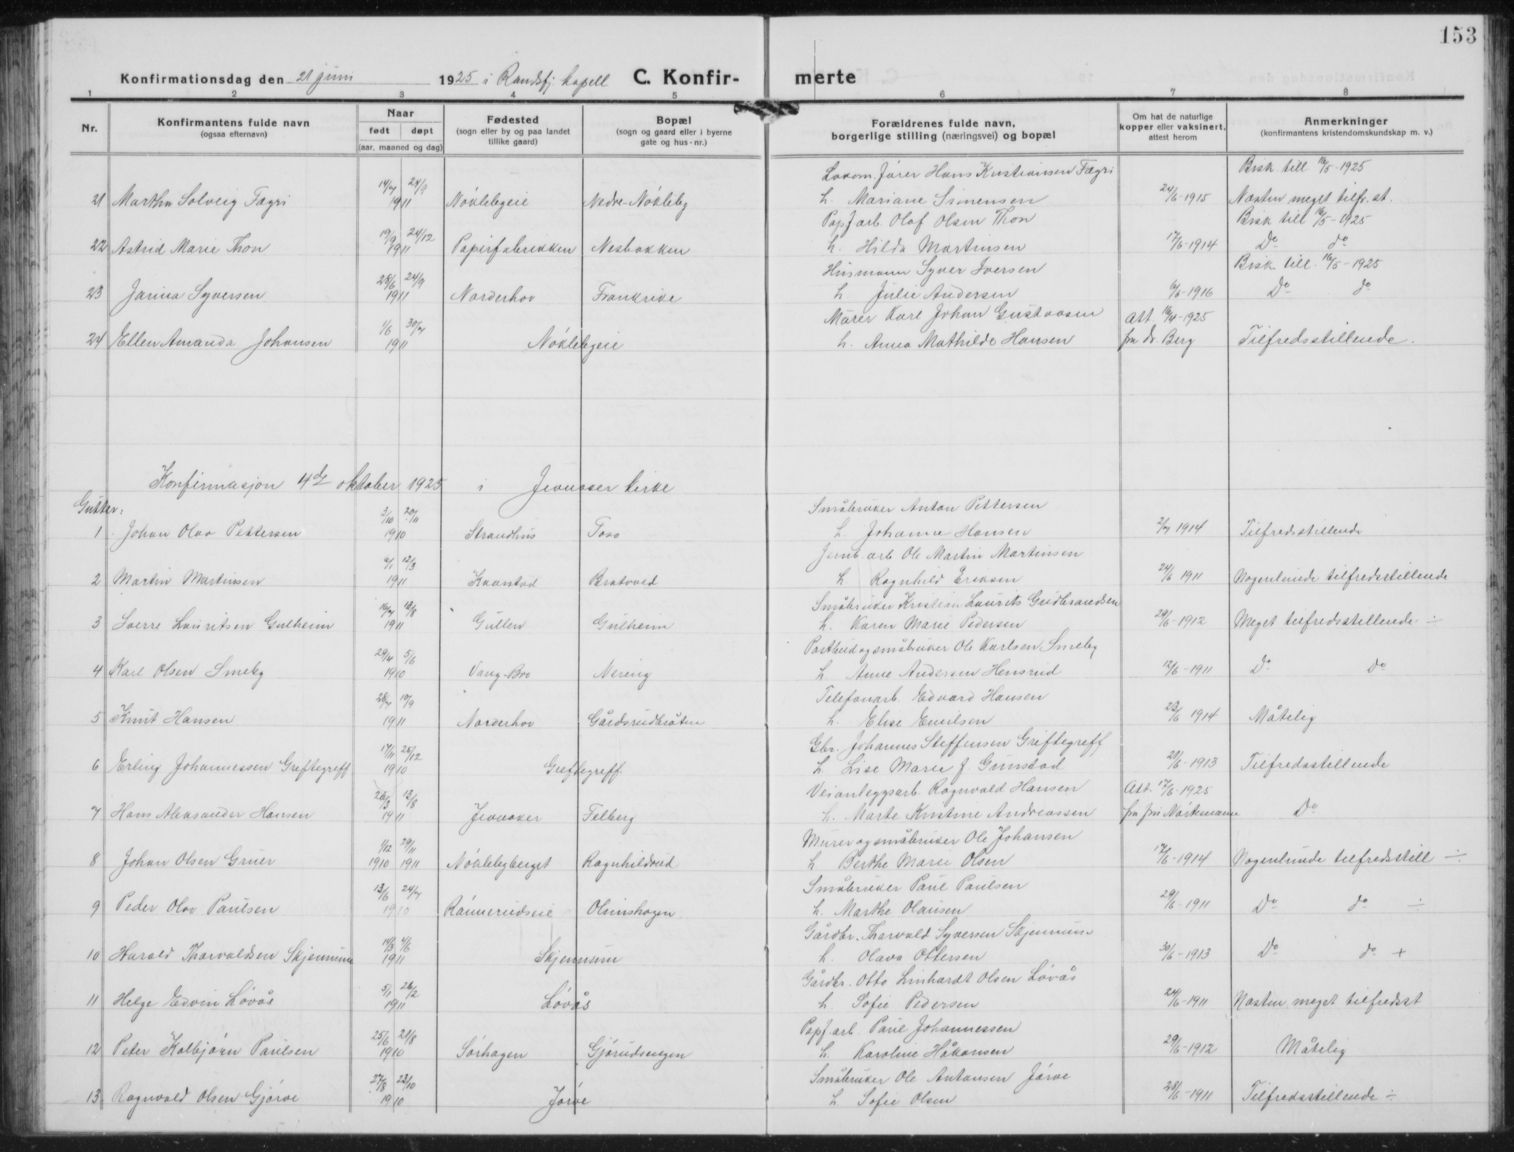 153
Konfirmationsdag den 21 juni 1925 i Randsfj. kapell C. Konfirmerte
1 2 3 4 5 6 7 8
Nr. Konfirmantens fulde navn (ogsaa efternavn) Naar født døpt (aar, maaned og dag) Fødested (sogn eller by og paa landet tillike gaard) Bopæl (sogn og gaard eller i byerne gate og hus-nr.) Forældrenes fulde navn, borgerlige stilling (næringsvei) og bopæl Om hat de naturlige kopper eller vaksinert, attest herom Anmerkninger (konfirmantens kristendomskundskap m. v.)
Lokom.fører Hans Kristiansen Fægri Bisk till 16/5-1925
21 Martha Solveig Fægri 14/7 24/9 1911 Nøklebyeie Nedre-Nøkleby h. Mariane Simensen 24/6-1915 Næsten meget tilfr. st.
Papf arb. Olaf Olsen Thon Bisk till 16/5-1925
22 Astrid Marie Thon 19/9 24/12 1911 Papirfabrikken Nesbakken h. Hilda Martinsen 17/6-1914 Do do
Husmann Syver Iversen Bisk till. 16/5-1925
23 Jarina Syversen 25/6 24/9 1911 Norderhov Frankrike h Julie Andersen 6/6-1916 Do do
Murer Karl Johan Gustavsen Att. 16/4-1925
24 Ellen Amanda Johansen 1/6 30/7 1911 Nøklebyeie h. Anna Mathilde Hansen fra dr. Berg Tilfredsstillende.
Konfirmasjon 4de oktober 1925 i Jevnaker kirke
Gutter:
Småbruker Anton Pettersen
1 Johan Olav Pettersen 3/10 20/11 1910 Strandhus Toso h Johanna Hansen 2/7 1914 Tilfredsstillende
Jernb.arb. Ole Martin Martinsen
2 Martin Martinsen 9/1 12/3 1911 Kvantad Bratvoid h Ragnhild Eriksen 24/6 1911 Nogenlunde tilfredsstillende
Småbruker Kristian Laurits Gudbrandsen
3 Sverre Lauritsen Gulheim 16/7 13/8 1911 Gullen Gulheim h. Karen Marie Pedersen 29/6-1912 Meget tilfredsstillende ÷
Postbud og småbruker Ole Karlsen Smeby
4 Karl Olsen Smeby 29/4 5/6 1910 Vang-Bro Nering h Anne Andersen Hensrud 12/6-1911 Do do
Telefonarb. Edvard Hansen
5 Knut Hansen 28/7 10/9 1911 Norderhov Gårdsrudbråten h. Elise Emilsen 23/6 1914 Måtelig
Gbr. Johannes Steffensen Greftegreff
6 Erling Johannessen Greftegreff 17/11 25/12 1910 Greftegreff h Lise Marie J. Grinstad 28/6-1913 Tilfredsstillende
Veianleggsarb. Ragnvald Hansen Att. 17/6-1925
7 Hans Aleksander Hansen 26/3 13/8 1911 Jevnaker Felberg h. Marte Kristine Andreassen fra fru Mørkmann Do
Murer og småbruker Ole Johansen
8 Johan Olsen Gruer 5/12 29/11 1910 1911 Nøklebyberget Ragnhildrud h Berthe Marie Olsen 17/6-1914 Nogenlunde tilfredsstill ÷
Småbruker Paul Paulsen
9 Peder Olav Paulsen 13/6 24/7 1910 Rønnerudseie Olsinshagen h. Marthe Olausen 29/6-1911 Do do ÷
Gårdbr. Thorvald Syversen Skjennum
10 Harald Thorvaldsen Skjennum 14/3 4/6 1911 Skjennum h. Olava Ottersen 30/6-1913 Do do +
Gårdbr. Otto Linhardt Olsen Løvås
11 Helge Edvin Løvås 5/1 26/2 1911 Løvås h. Sofie Pedersen 24/6-1911 Næsten meget tilfredsst
Papf arb. Paul Johannessen
12 Peter Kolbjørn Paulsen 25/6 21/8 1910 Sørhagen Gjørudsengen h. Karoline Håkansen 29/6-1912 Måtelig
Småbruker Ole Antonsen Jørve
13 Ragnvald Olsen Gjørve 27/8 23/10 1910 Jørve h Sofie Olsen 28/6-1911 Tilfredsstillende ÷